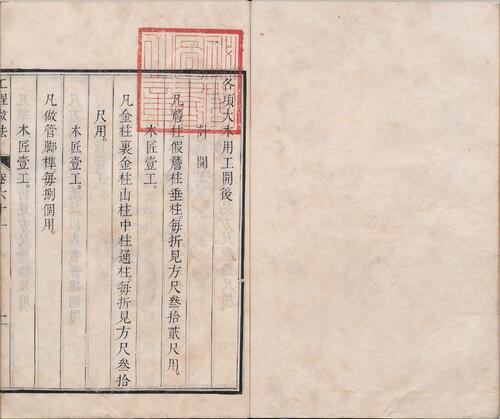 各項大木用工開後
計開
凡簷柱假簷柱垂柱每折見方尺叁拾貳尺用
木匠壹工
凡金柱裏金柱山柱中柱通柱每折見方尺叁拾
尺用
木匠壹工
凡做管脚榫每捌個用
木匠壹工
工程做法 卷六十一 一